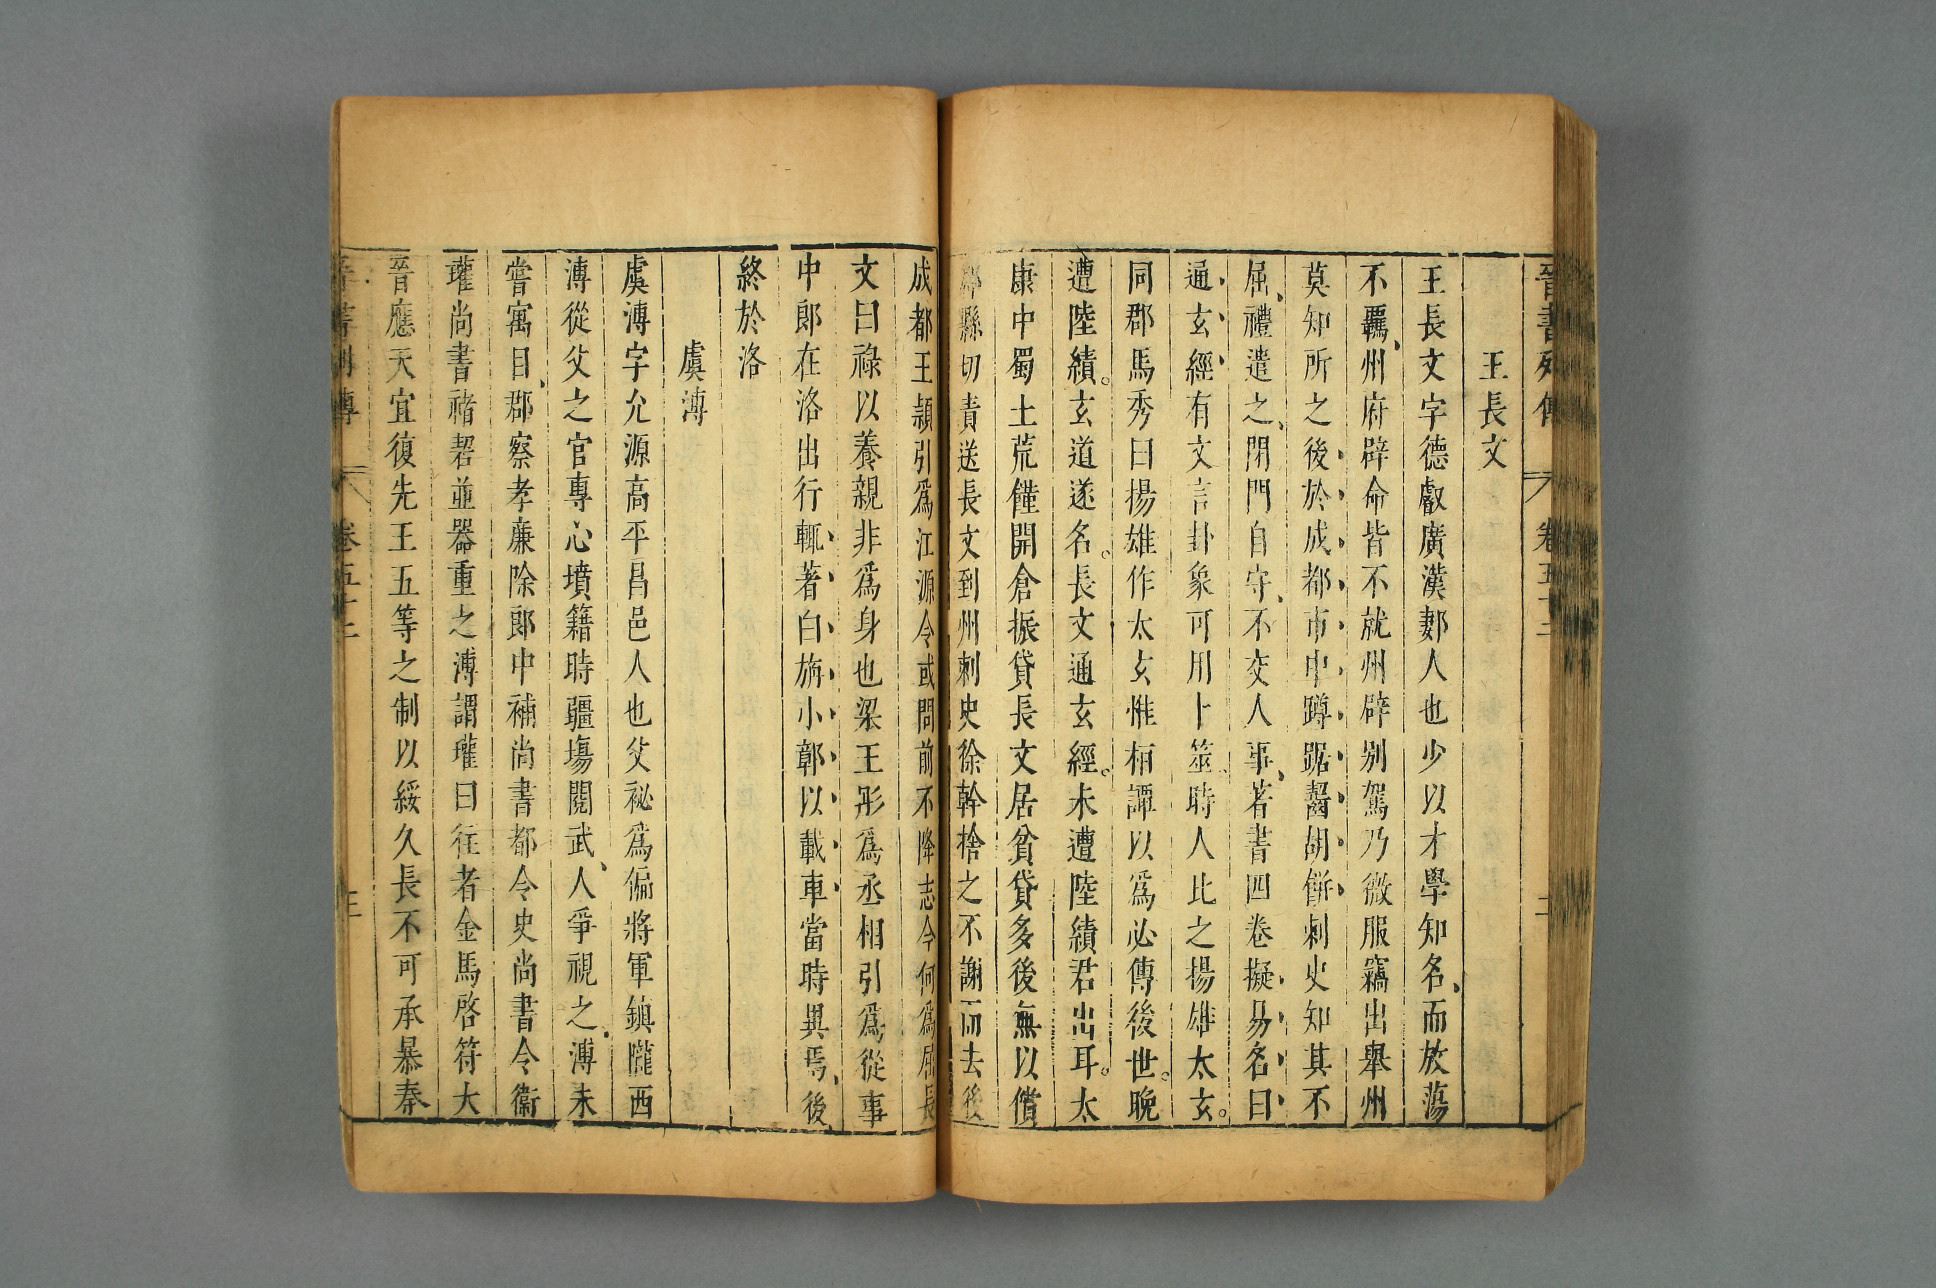 晉書列傳 卷五十二 二
王長文
王長文字德叡廣漢郪人也少以才學知名、而放蕩
不羈、州府辟命皆不就州辟別駕乃微服竊出舉州
莫知所之後於成都市中蹲踞齧胡餅刺史知其不
屈、禮遣之、閉門自守、不交人事、著書四卷擬易名曰
通玄經有文言卦象可用卜筮。時人比之揚雄太玄。
同郡馬秀曰揚雄作太玄惟桓譚以爲必傳後世。晚
遭陸績。玄道遂名。長文通玄經。未遭陸績君出耳。太
康中蜀土荒饉開倉振貸長文居貧貸多後無以償
郡縣切責送長文到州刺史徐幹捨之不謝而去後
成都王穎引爲江源令或問前不降志今何爲屈長
文曰祿以養親非爲身也梁王肜爲丞相引爲從事
中郎在洛出行輒著白旃小鄣以載車當時異焉、後
終於洛
虞溥
虞溥字允源高平昌邑人也父祕爲偏將軍鎮隴西
溥從父之官專心墳籍時疆場閱武、人爭視之、溥未
嘗寓目、郡察孝廉除郎中補尚書都令史尚書令衞
瓘尚書褚䂮並器重之溥謂瓘曰往者金馬啓符大
晉應天宜復先王五等之制以綏久長不可承暴秦
卷五十二